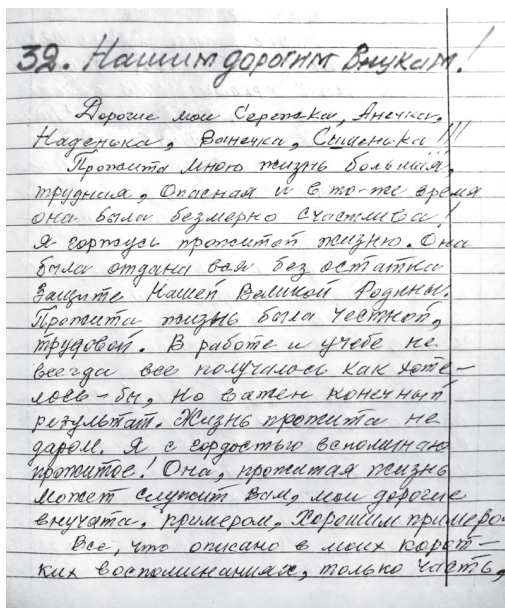 32. Нашим дорогим внукам!
Дорогие мои Сережка, Анечка,
Наденька, Ванечка, Сашенька!!!
Прожита мною жизнь большая,
трудная, опасная и в то-же время
она была безмерно счастлива!
Я горжусь прожитой жизню. Она
была отдана вся без остатка
защите Нашей Великой Родины.
Прожита жизнь была честной,
трудовой. В работе и учебе не
всегда все получалось как хоте-
лось-бы, но важен конечный
результат. Жизнь прожита не
даром. Я с гордостью вспоминаю
прожитое! Она, прожитая жизнь
может служит Вам, мои дорогие
внучата, примером, хорошим примеро
Все, что описано в моих корот-
ких воспоминаниях, только часть,